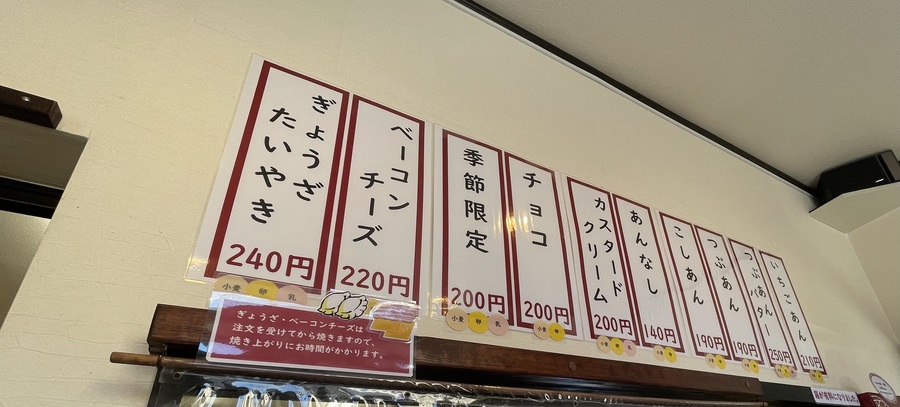 ぎょうざ
たいやき
240円
ベーコン
チーズ
220円
季節限定
200円
チョコ
200円
カスタード
クリーム
200円
あんなし
140円
こしあん
190円
つぶあん
190円
つぶあん
バター
250円
いちごあん
210円
小麦 卵 乳
小麦 卵 乳
小麦 卵
ぎょうざ・ベーコンチーズは
注文を受けてから焼きますので、
焼き上がりにお時間がかかります。
箱が有料になりました。